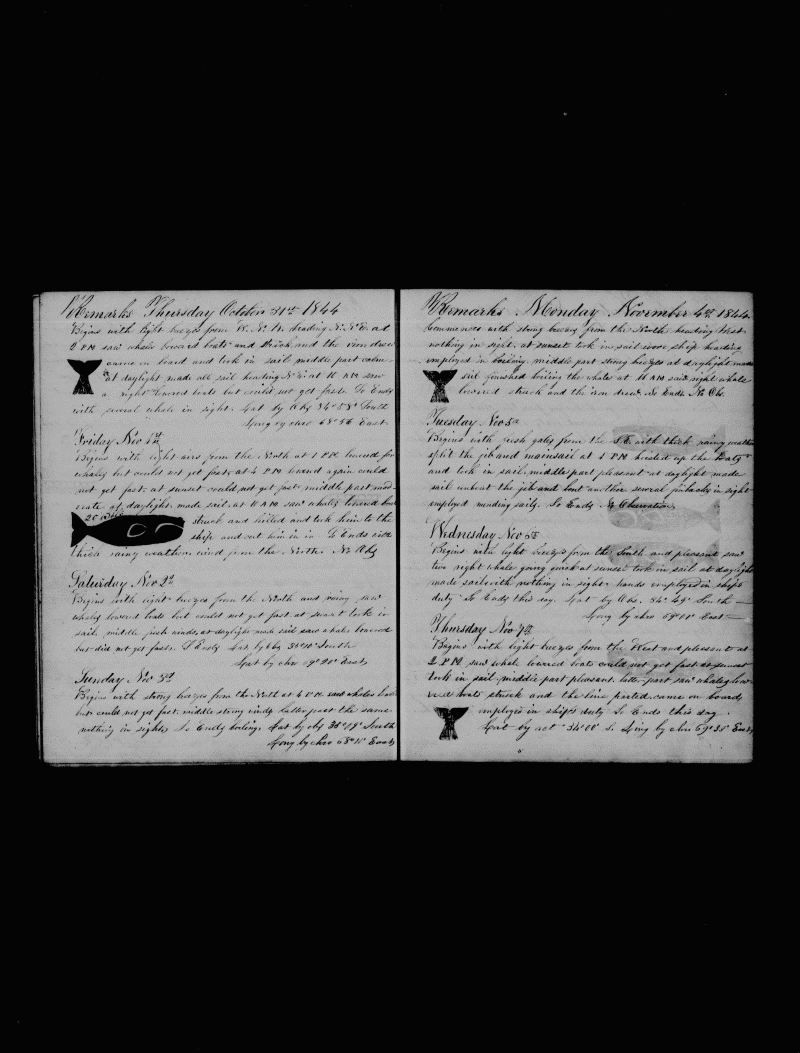 Remarks Thursday October 31st 1844
Begins with light breezes from W.N.W. heading N.N.E. at
2 PM saw whales lowered boats and struck and the iron drew
came on board and took in sail middle part calm
at daylight made all sail heading N.E. at 11 AM saw
a right lowered boats but could not get fast So Ends
with several whale in sight. Lat by Obs 34°58" South
Long by chro 68°46 East.
Friday Nov 1st
Begins with light airs from the North at 1 PM lowered for
whales but could not get fast at 4 PM lowered again could
not get fast, at sunset could not get fast middle part mod-
erate at daylight made sail at 11 AM saw whales lowered boats
20 bbls struck and killed and took him to the
ship and cut him in So Ends with
thick rainy weather wind from the North. No Obs
Saturday Nov 2d
Begins with light breezes from the North and rainy saw
whales lowered boats but could not get fast at sunset took in
sail middle fresh winds, at daylight made sail saw whales lowered
but did not get fast. So Ends Lat by Obs 35°10" South
Lat by chro 69°20" East
Sunday Nov 3d
Begins with strong breezes from the North at 4 PM saw whales
but could not get fast, middle strong winds latter part the same
nothing in sight, So Ends boiling. Lat by obs 35°19" South
Long by chro 68°11" East
Remarks Monday November 4th 1844
Commences with strong breezes from the North heading West
nothing in sight, at sunset took in sail wore ship heading
employed in boiling middle part strong breezes at daylight made
sail finished boiling the whale at 11 AM saw right whale
lowered struck and the iron drew So Ends No Obs
Tuesday Nov 5th
Begins with fresh gales from the S.E. with thick rainy weather
split the jib and mainsail at 1 PM hauled up the
and took in sail middle part pleasant at daylight made
sail unbent the jib and bent another several finbacks in sight
employed mending sails, So Ends No Observation
Wednesday Nov 6th
Begins with light breezes from the South and pleasant saw
two right whale going quick at sunset took in sail at daylight
made sail with nothing in sight hands employed in ships
duty So Ends this day. Lat by Obs. 34°49" South
Long by chro 69°00" East
Thursday Nov 7th
Begins with light breezes from the West and pleasant at
2 PM saw whale lowered boats could not get fast at sunset
took in sail middle part pleasant latter part saw whales low-
ered boats struck and the line parted came on board
employed in ship's duty So Ends this day.
Lat by act 34°00" So Long by chro 69°30" East